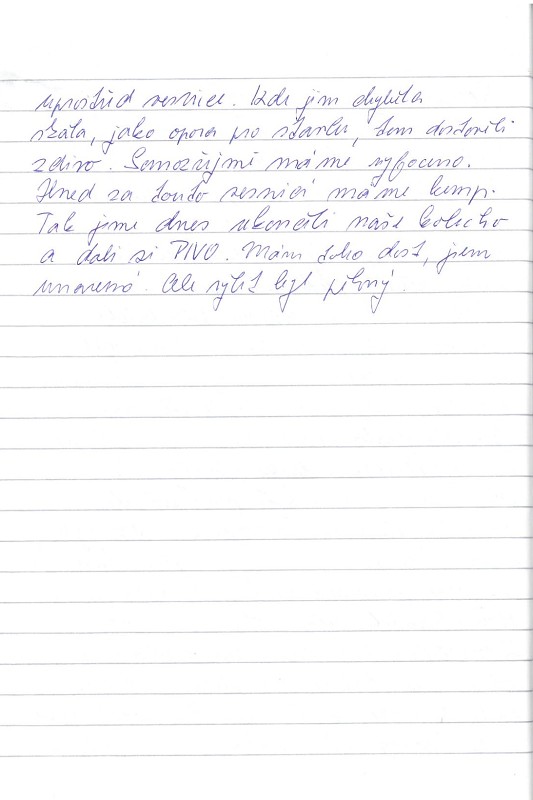 uprostřed vesnice. Kde jim chyběla
skála, jako opora pro stavbu, tam dostavili
zdivo. Samozřejmě máme vyfoceno.
Hned za touto vesnicí máme kemp.
Tak jsme dnes ukončili naše kolečko
a dali si PIVO. Mám toho dost, jsem
unavená. Ale výlet byl pěkný.